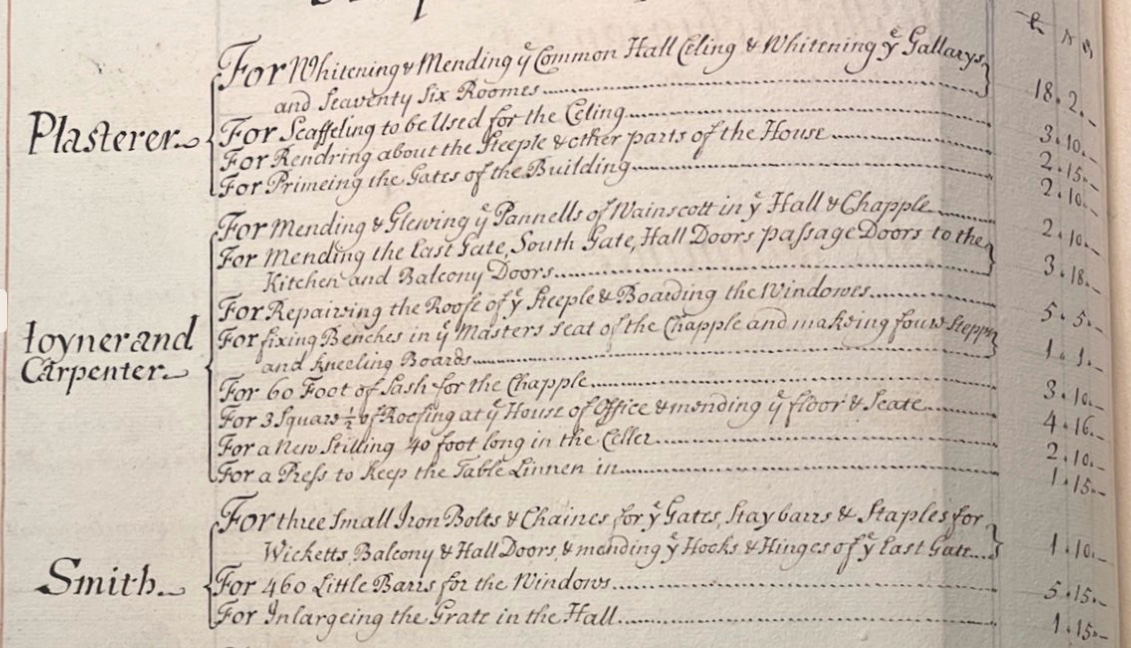 li s d
For Whitening & Mending ye Common Hall Celing & Whitening ye Gallarys
and Seaventy Six Roomes 18. 2. -
Plasterer For Scaffeling to be Used for the Celing 3. 10. -
For Rendring about the Steeple & other parts of the House 2. 15. -
For Primeing the Gates of the Building 2. 10.
For Mending & Glewing ye Pannells of Wainscott in ye Hall & Chapple 2. 10. -
For Mending the East Gate, South Gate, Hall Doors passage Doors to the
Kitchen and Balcony Doors 3. 18. -
For Repairing the Roofe of ye Steeple & Boarding the Windowes 5. 5. -
Ioyner and For fixing Benches in ye Masters seat of the Chapple and making four Stepps
Carpenter and kneeling Boards 1. 1. -
For 60 Foot of Sash for the Chapple 3. 10. -
For 3 Square ½ of Roofing at ye House of Office & mending ye floor & Seate 4. 16. -
For a New Stilling 40 foot long in the Celler 2. 10. -
For a Press to Keep the Table Linnen in 1. 15. -
For three Small Iron Bolts & Chaines for ye Gates, Stay barrs & Staples for
Wicketts, Balcony & Hall Doors, & mending ye Hocks & Hinges of ye East Gate 1. 10. -
Smith For 460 Little Barrs for the Windows 5. 15. -
For Inlargeing the Grate in the Hall 1. 15. -